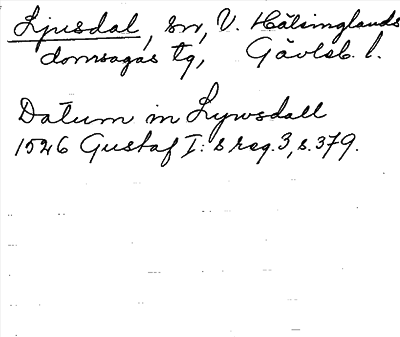 Ljusdal, sn, V. Hälsinglands
domsagas tg, Gävleb. l.
Datum in Lywsdall
1526 Gustaf I:s reg. 3, s. 379.